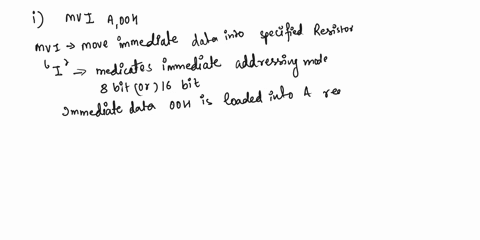 i) MVI A,00H
MVI → move immediate data into specified Resistor
'I' → medicates immediate addressing mode
8 bit (or) 16 bit
Immediate data 00H is loaded into A re